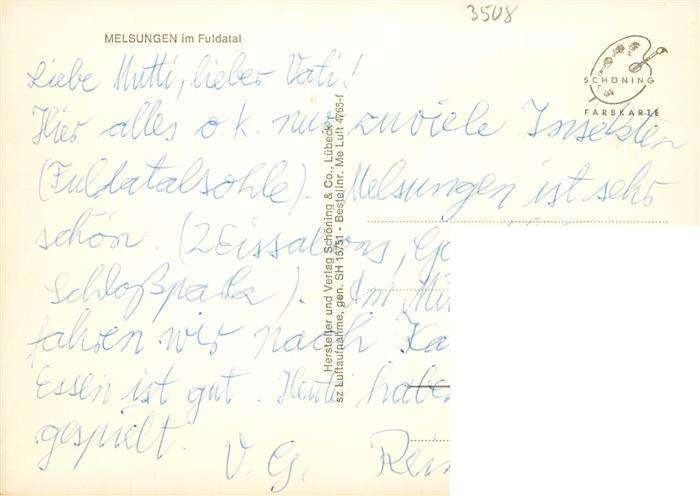 3508
MELSUNGEN im Fuldatal
SCHÖNING
FARBKARTE
Liebe Mutti, lieber Vati!
Hier alles o.k. nur zuviele Insekten
(Fuldatalsohle). Melsungen ist sehr
schön. (2 Eissalons,
Schloßpark). Am
fahren wir nach
Essen ist gut. Heute
gespielt.
V. G.
Hersteller und Verlag Schöning & Co., Lübeck
sz Luftaufnahme, gen. SH 15/751 - Bestellnr. Me Luft 4765-f